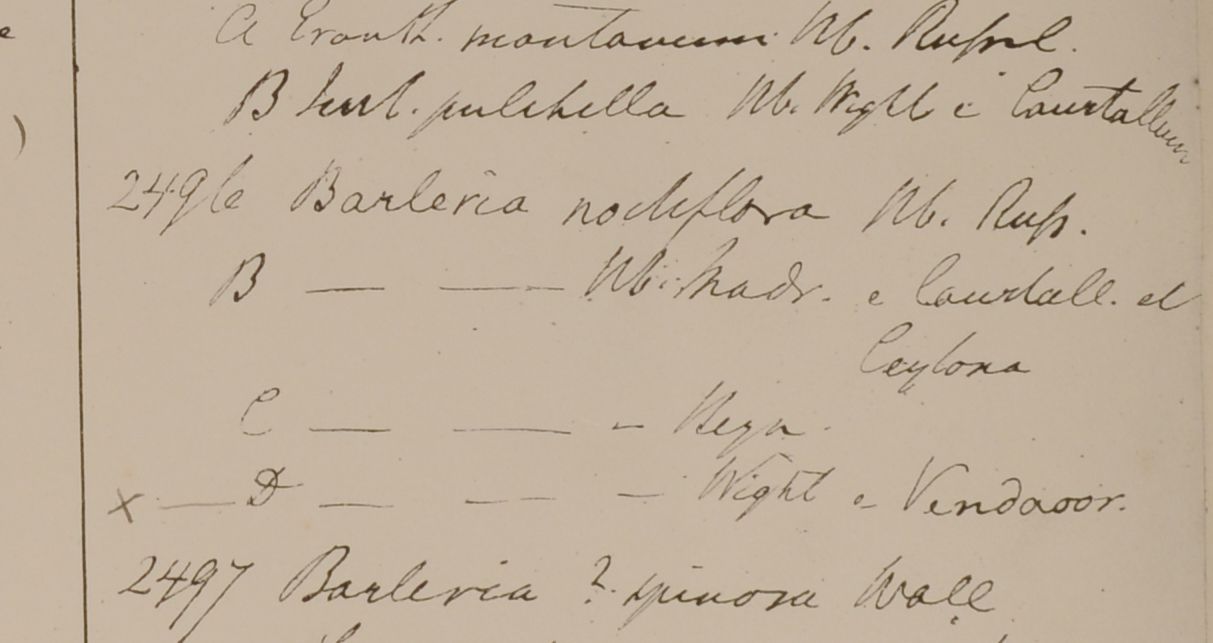 a Eranth. montanum Hb. Russel.
B Just. pulchella Hb. Wight e Courtallum
2496 Barleria nodiflora Hb. Russ.
B — — Hb. Madr. e Courtall. et
Ceylona
C — — - Heyn.
x — D — — — Wight e Vendaoor.
2497 Barleria ? spinosa Wall